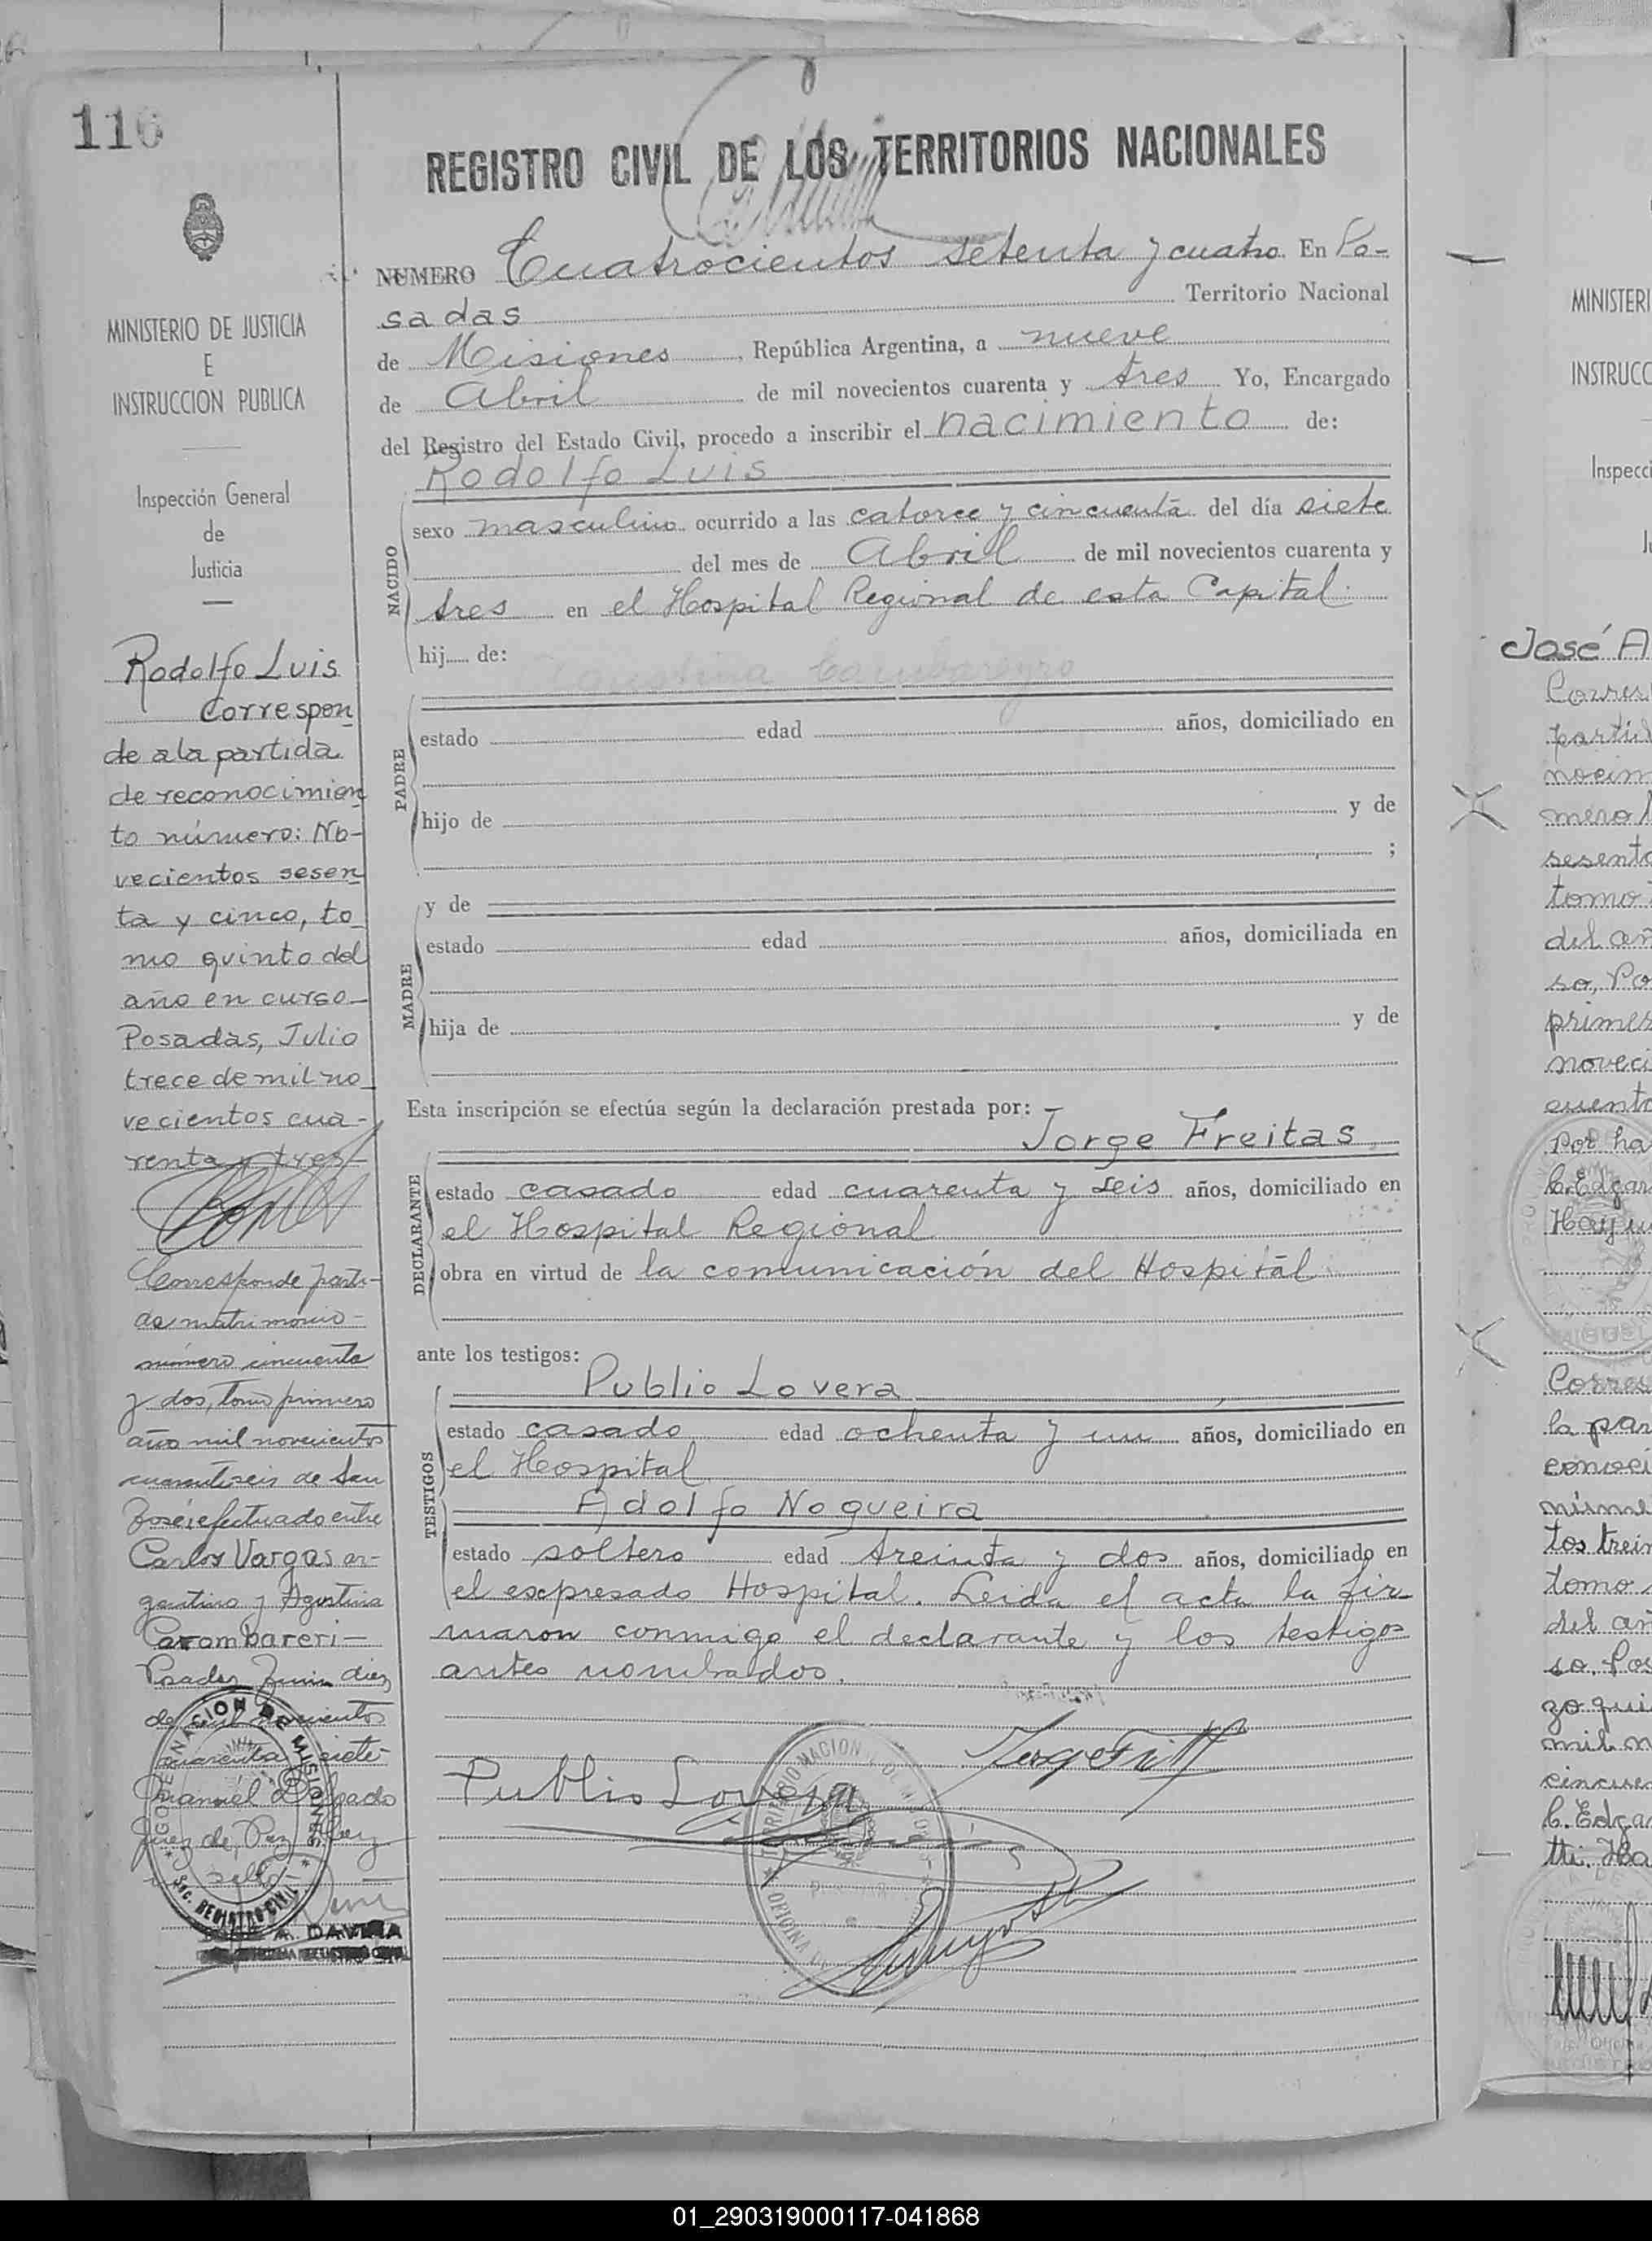 116
MINISTERIO DE JUSTICIA
E
INSTRUCCION PUBLICA
Inspección General
de
Justicia
Rodolfo Luis
Correspon
de a la partida
de reconocimien
to número: No-
vecientos sesen
ta y cinco, to
mo quinto del
año en curso
Posadas, Julio
trece de mil no
vecientos cua-
renta y tres-
Corresponde parti-
da matrimonio-
número cincuenta
y dos, tomo primero
año mil novecientos
cuarentiseis de San
José, efectuado entre
Carlos Vargas ar-
gentino y Agustina
Carambareri-
Posadas Junio diez
de mil novecientos
cuarenta siete
Manuel Delgado
Juez de Paz Hay
sello-
GOBERNACION DE MISIONES
SEC. REGISTRO CIVIL
A. DAVIÑA
REGISTRO CIVIL DE LOS TERRITORIOS NACIONALES
NUMERO Cuatrocientos setenta y cuatro. En Po-
sadas Territorio Nacional
de Misiones, República Argentina, a nueve
de Abril de mil novecientos cuarenta y tres Yo, Encargado
del Registro del Estado Civil, procedo a inscribir el nacimiento de:
Rodolfo Luis
NACIDO
sexo masculino ocurrido a las catorce y cincuenta del día siete
del mes de Abril de mil novecientos cuarenta y
tres en el Hospital Regional de esta Capital.
hij de:
Agustina
PADRE
estado edad años, domiciliado en
hijo de y de
;
y de
MADRE
estado edad años, domiciliada en
hija de y de
Esta inscripción se efectúa según la declaración prestada por:
Jorge Freitas
DECLARANTE
estado casado edad cuarenta y seis años, domiciliado en
el Hospital Regional
obra en virtud de la comunicación del Hospital
ante los testigos:
Publio Lovera
TESTIGOS
estado casado edad ochenta y un años, domiciliado en
el Hospital
Adolfo Nogueira
estado soltero edad treinta y dos años, domiciliado en
el expresado Hospital. Leida el acta la fir-
maron conmigo el declarante y los testigos
antes nombrados.
Publio Lovera
MINISTERI
INSTRUCC
Inspecci
José A
Corres
partid
nocim
mero
sesenta
tomo
del añ
so, Po
primer
noveci
cuenta
Por ha
C. Edgar
Hay un
Corres
la par
conoci
númer
tos trein
tomo
del añ
so, Pos
zo qui
mil n
cincuen
C. Edgar
tti. Ha
01_290319000117-041868